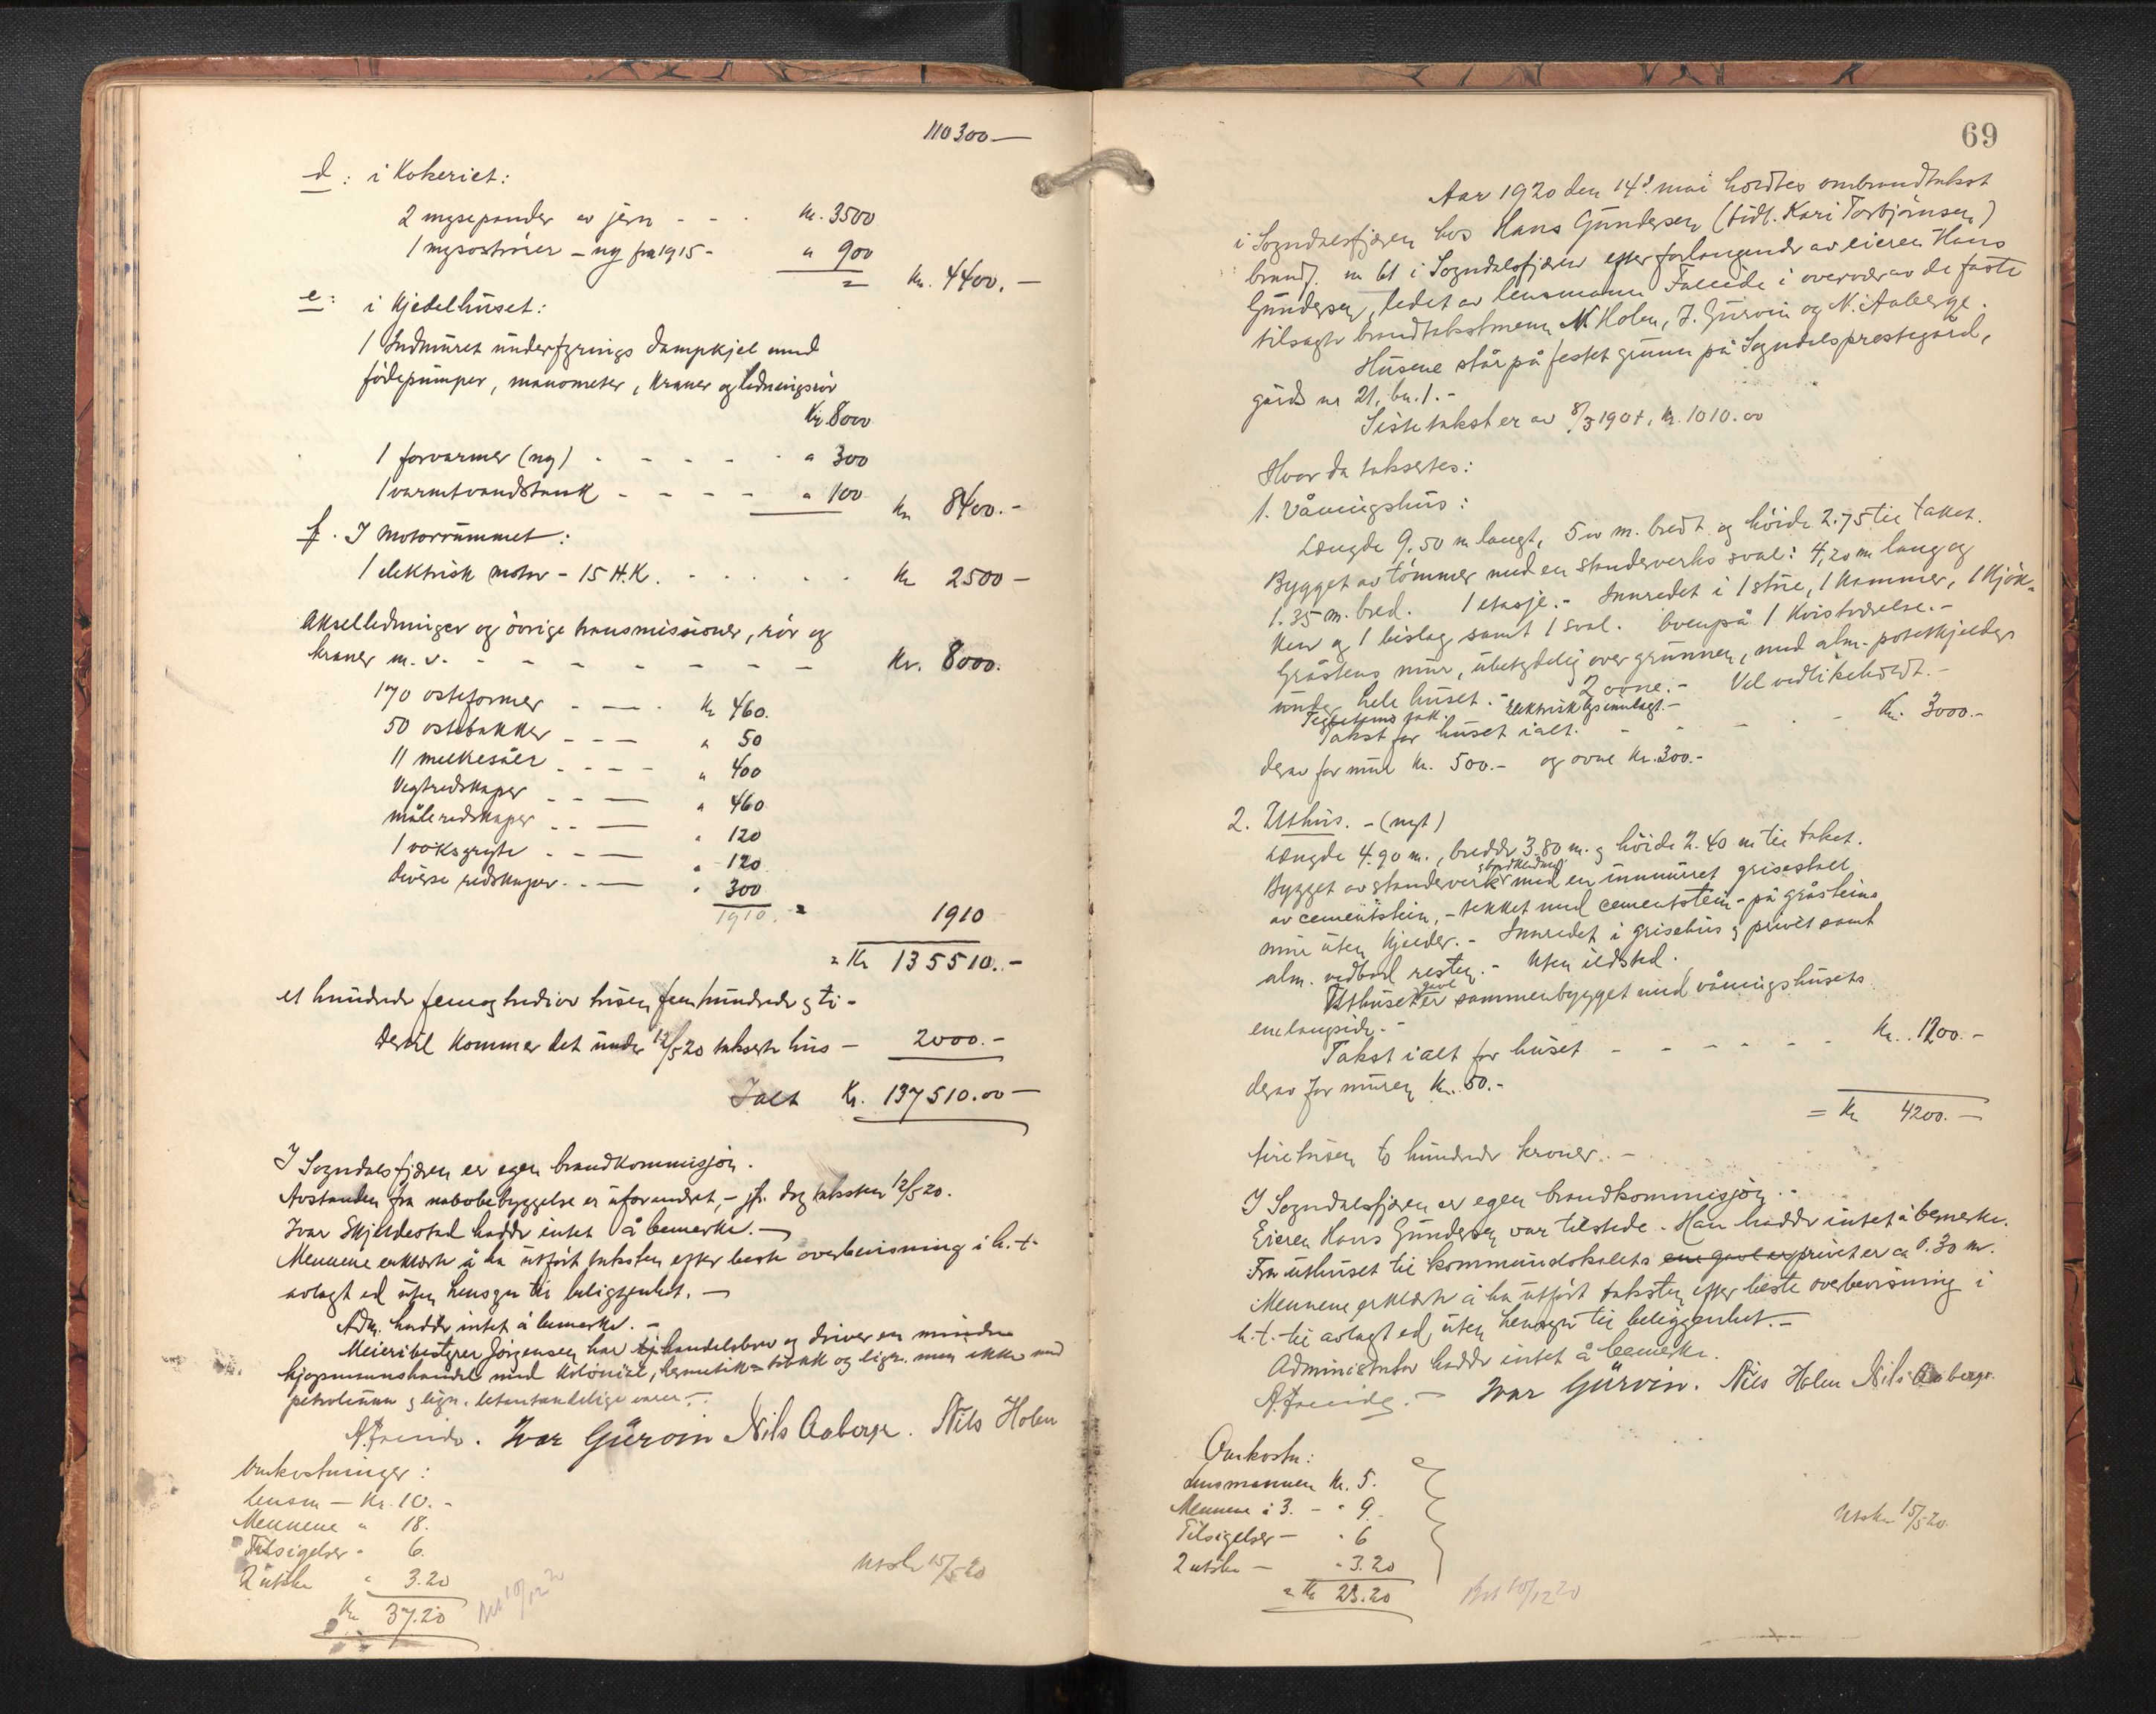 110300 —
d: i Kokeriet:
2 mysepander av jern - - - kr. 3500
1 mysostrører - ny fra 1915 - " 900
= kr. 4400. —
e: i Kjedelhuset:
1 Indmuret underfyrings dampkjel med
fødepumper, manometer, kraner og ledningsrør
Kr. 8000
1 forvarmer (ny) - - - - - " 300
1 varmtvandstank - - - - " 100 kr 8400.-
f. I Motorrummet:
1 elektrisk motor - 15 H.K. - - - - - kr 2500 -
Akselledninger og övrige transmissioner, rör og
kraner m. v. - - - - - - - Kr. 8000.
170 osteformer - - kr 460.
50 ostebakker - - - " 50
11 melkesåer - - - - " 400
Vegtredskaper - - - " 460
måleredskaper - - - " 120
1 voksgryte - - - " 120
diverse redskaper - - - " 300
1910. = 1910
= Kr 135510.-
et hundrede femogtredive tusen fem hundrede og ti -
Dertil kommer det under 12/5 20 takserte hus - 2000.-
Ialt Kr. 137510.00 -
I Sogndalsfjæren er egen brandkommisjon.
Avstanden fra nabobebyggelse er uforandret, - jfr. dog taksten 12/5 20.
Ivar Skjeldestad hadde intet å bemerke. -
Mennene erklærte å ha utført taksten efter beste overbevisning i h. t.
avlagt ed uten hensyn til beliggenhet. -
Adm. hadde intet å bemerke. -
Meieribestyrer Jørgensen har handelsbrev og driver en mindre
kjøpmannshandel med kolonial, hermetik - tobakk og lign. men ikke med
petroleum og lign. letantendelige varer. -
A. Faleide. Ivar Gurvin Nils Aaberge. Nils Holen
Omkostninger:
Lensm — Kr. 10. -
Mennene " 18.
Tilsigelser " 6.
2 utskr " 3.20
Kr 37.20
Bet 10/12 20
Utskr 15/5 20
69
Aar 1920 den 14d. mai holdtes ombrandtakst
i Sogndalsfjæren hos Hans Gundersen (tidl. Kari Torbjørnsen)
brandf. nr 61 i Sogndalsfjæren efter forlangende av eieren Hans
Gundersen, ledet av lensmann Faleide i overvær av de faste
tilsagte brandtakstmenn N. Holen, I. Gurvin og N. Aaberge.
Husene står på festet grunn på Sogndals prestegård,
gårds nr 21, bn. 1. -
Siste takst er av 8/3 1907, kr. 1010.00
Hvor da takseres:
1. Våningshus:
Længde 9,50 m langt, 5 m. bredt og høide 2.75 til taket.
Bygget av tømmer med en standerverks sval: 4,20 m lang og
1.35 m. bred. 1 etasje. - Innredet i 1 stue, 1 kammer, 1 kjøk-
ken og 1 bislag samt 1 sval. Ovenpå 1 kvistværelse. -
Gråstens mur, ubetydelig over grunnen, med alm. potetkjelder
under hele huset. - 2 ovne. - Vel vedlikeholdt. -
Teglstens tak. Elektrisk lys innlagt. -
Takst for huset ialt. - - - - Kr. 3000.-
derav for mur kr. 500.- og ovne kr. 300.-
2. Uthus. - (nyt)
Længde 4.90 m., bredde 3.80 m. og høide 2.40 m til taket.
Bygget av standerverk bordklædning med en innmuret grisestall
av cementstein, - tekket med cementstein - på gråsteins
mur uten kjelder. - Innredet i grisehus og privet samt
alm. vedbod resten. - Uten ildsted.
Uthusets gavl er sammenbygget med våningshusets
ene langside. -
Takst ialt for huset - - - - - - Kr. 1200.-
derav for muren kr. 50.-
= Kr 4200. -
fire tusen to hundrede kroner. -
I Sogndalsfjæren er egen brandkommisjon. -
Eieren Hans Gundersen var tilstede. Han hadde intet å bemerke.
Fra uthuset til kommunelokalets ene gavl er privet er ca 0.30 m.
Mennene erklærte å ha utført taksten efter beste overbevisning i
h. t. til avlagt ed, uten hensyn til beliggenhet. -
Administrator hadde intet å bemerke.
A. Faleide. - Ivar Gurvin. Nils Holen Nils Aaberge.
Omkostn:
Lensmannen kr. 5.
Mennene à 3. - " 9.
Tilsigelser - " 6
2 utskr - " 3.20
= Kr 23.20
Bet 10/12 20
Utskr 15/5 20.